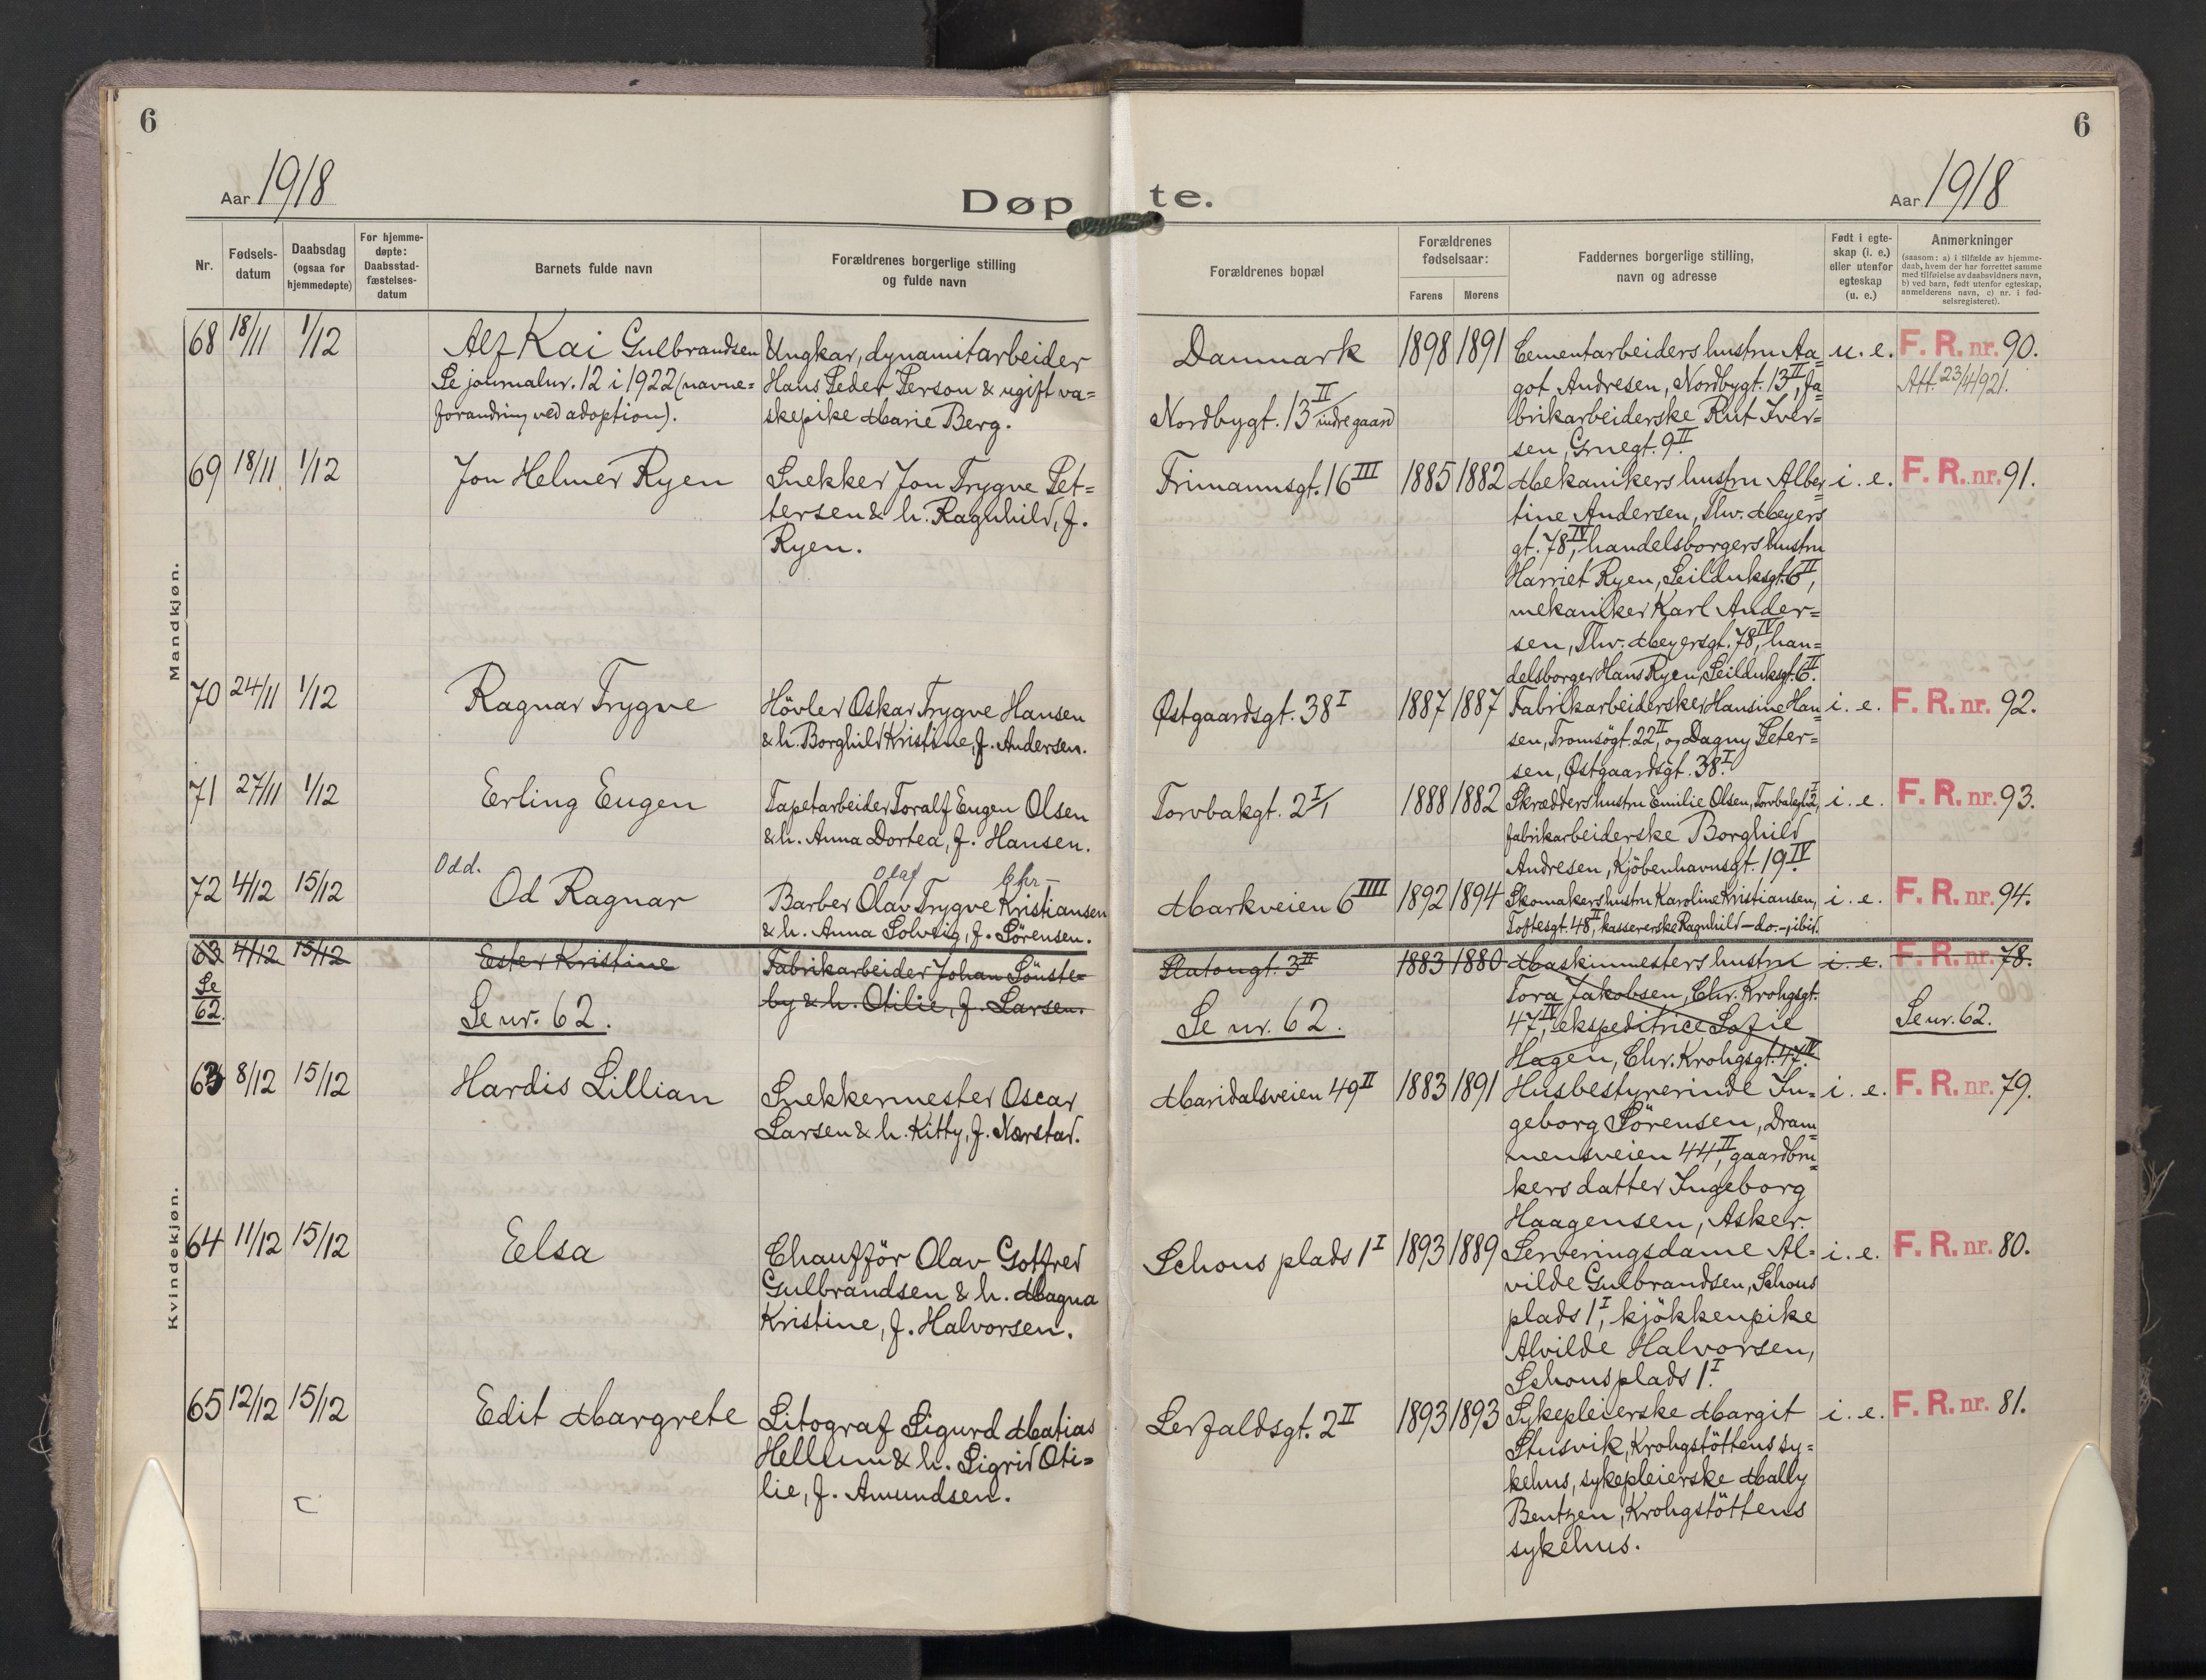 6
6
Aar 1918
Døpte.
Aar 1918
Nr.
Fødsels-
datum
Daabsdag
(ogsaa for
hjemmedøpte)
For hjemme-
døpte:
Daabsstad-
fæstelses-
datum
Barnets fulde navn
Forældrenes borgerlige stilling
og fulde navn
Forældrenes bopæl
Forældrenes
fødselsaar:
Farens
Morens
Faddernes borgerlige stilling,
navn og adresse
Født i egte-
skap (i. e.)
eller utenfor
egteskap
(u. e.)
Anmerkninger
(saasom: a) i tilfælde av hjemme-
daab, hvem der har forrettet samme
med tilføielse av daabsvidners navn,
b) ved barn, født utenfor egteskap,
anmelderens navn, c) nr. i fød-
selsregisteret).
Mandkjøn.
68 18/11 1/12
Alf Kai Gulbrandsen
Se journalnr. 12 i 1922 (navne=
forandring ved adoption).
Ungkar, dynamitarbeider
Hans Peder Person & ugift va=
skepike Marie Berg.
Danmark
Nordbygt. 13 II indre gaard
1898 1891
Cementarbeiders hustru Aa=
got Andresen, Nordbygt. 13 II, fa=
brikarbeiderske Rut Iver=
sen, Gruegt. 9 II.
u. e.
F. R. nr. 90.
Att. 23/4/921.
69 18/11 1/12
Jon Helmer Ryen
Snekker Jon Trygve Pet=
tersen & h. Ragnhild, f.
Ryen.
Frimannsgt. 16 III
1885 1882
Mekanikers hustru Alber=
tine Andersen, Thv. Meyers
gt. 78 IV, handelsborgers hustru
Harriet Ryen, Seilduksgt. 6 II,
mekaniker Karl Ander=
sen, Thv. Meyersgt. 78 IV, han=
delsborger Hans Ryen, Seilduksgt. 6 II.
i. e.
F. R. nr. 91.
70 24/11 1/12
Ragnar Trygve
Hövler Oskar Trygve Hansen
& h. Borghild Kristine, f. Andersen.
Østgaardsgt. 38 I
1887 1887
Fabrikarbeidersker Hansine Han=
sen, Tromsögt. 22 II, og Dagny Peter=
sen, Østgaardsgt. 38 I.
i. e.
F. R. nr. 92.
71 27/11 1/12
Erling Eugen
Tapetarbeider Toralf Eugen Olsen
& h. Anna Dortea, f. Hansen.
Torvbakgt. 2 I/1
1888 1882
Skrædders hustru Emilie Olsen, Torvbakgt. 2 I,
fabrikarbeiderske Borghild
Andresen, Kjöbenhavnsgt. 19 IV.
i. e.
F. R. nr. 93.
72 4/12 15/12
Odd.
Od Ragnar
Olaf Chr-
Barber Olav Trygve Kristiansen
& h. Anna Solveig, f. Sörensen.
Markveien 6 IIII
1892 1894
Skomakers hustru Karoline Kristiansen,
Toftesgt. 48 II, kassererske Ragnhild - do. -, ibid.
i. e.
F. R. nr. 94.
Kvindekjøn.
63 4/12 15/12
Se
62.
Ester Kristine
Se nr. 62.
Fabrikarbeider Johan Sönste=
by & h. Otilie, f. Larsen.
Platougt. 3 II
Se nr. 62.
1883 1880
Maskinmesters hustru
Tora Jakobsen, Chr. Krohgsgt.
47 IV, ekspeditrice Sofie
Hagen, Chr. Krohgsgt. 47 IV.
i. e.
F. R. nr. 78.
Se nr. 62.
63 8/12 15/12
Hardis Lillian
Snekkermester Oscar
Larsen & h. Kitty, f. Nærstad.
Maridalsveien 49 II
1883 1891
Husbestyrerinde In=
geborg Sörensen, Dram=
mensveien 44 II, gaardbru=
kers datter Ingeborg
Haagensen, Asker.
i. e.
F. R. nr. 79.
64 11/12 15/12
Eelsa
Chaufför Olav Gotfred
Gulbrandsen & h. Magna
Kristine, f. Halvorsen.
Schous plads 1 I
1893 1889
Serveringsdame Al=
vilde Gulbrandsen, Schous
plads 1 I, kjökkenpike
Alvilde Halvorsen,
Schous plads 1 I.
i. e.
F. R. nr. 80.
65 12/12 15/12
Edit Margrete
Litograf Sigurd Matias
Hellum & h. Sigrid Oti=
lie, f. Amundsen.
Lerfaldsgt. 2 II
1893 1893
Sykepleierske Margit
Stusvik, Krohgstöttens sy=
kehus, sykepleierske Mally
Bentzen, Krohgstöttens
sykehus.
i. e.
F. R. nr. 81.